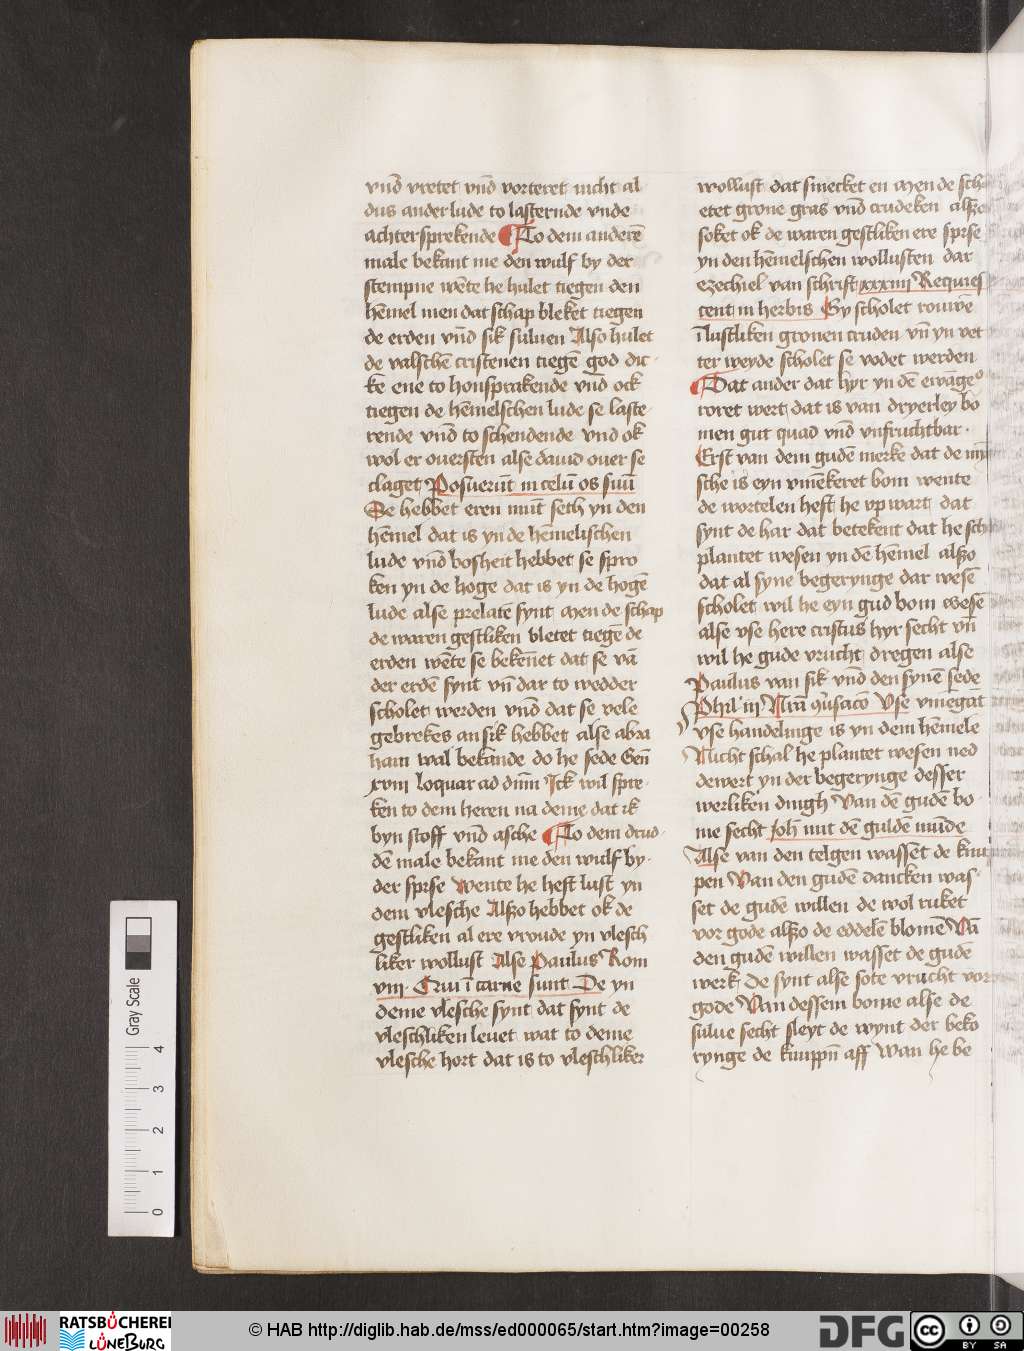 vnd vretet vnd vorteret nicht al
dus ander lude to lasternde vnde
achtersprekende To dem anderē
male bekant me den wulf by der
stempne wēte he hulet tiegen den
hēmel men dat schap bleket tiegen
de erden vnd sik suluen Also hulet
de valschē cristenen tiegē god dic
kē ene to honsprakende vnd ock
tiegen de hēmelschen lude se laste
rende vnd to schendende vnd ok
wol er ouersten alse dauid ouer se
claget Posuerūt in celū os suū
Se hebbet eren mūt seth yn den
hēmel dat is yn de hēmelischen
lude vnd bosheit hebbet se spro
ken yn de hoge dat is yn de hogē
lude alse prelatē synt Men de schap
de waren gestliken bletet tiegē de
erden wēte se bekēnet dat se vā
der erdē synt vn̄ dar to wedder
scholet werden vnd dat se vele
gebrekes an sik hebbet alse abra
ham wal bekande do he sede Gen̄
xviii loquar ad dn̄m Ick wil spre
ken to dem heren na deme dat ik
byn stoff vnd asche To dem drud
dē male bekant me den wulf by
der spise wente he heft lust yn
dem vlesche Alszo hebbet ok de
gestliken al ere vroude yn vlesch
liker wollust Alse Paulus Rom
viii Qui ī carne sunt De yn
deme vlesche synt dat synt de
vleschliken leuet wat to deme
vlesche hort dat is to vleschliker
wollust dat smecket en Men de scha
etet grone gras vnd crudeken alszo
soket ok de waren gestliken ere spise
yn den hēmelschen wollusten dar
ezechiel van schrift xxxiiii Requies
cent in herbis Gy scholet rouwē
ī lustliken gronen cruden vn̄ yn vet
ter weyde scholet se vodet werden
Dat ander dat hyr yn dē ewāgeᵒ
roret wert dat is van dryerley bo
men gut quad vnd vnfruchtbar
Erst van dem gudē merke dat de mī
sche is eyn vmēkeret bom wente
de wortelen heft he vpwart dat
synt de har dat betekent dat he sch
plantet wesen yn dē hēmel alszo
dat al syne begerynge dar wesē
scholet wil he eyn gud bom wesē
alse vse here cristus hyr secht vn̄
wil he gude vrucht dregen alse
Paulus van sik vnd den synē sede
Phil' iii Nr̄a 9ūsacō Vse vmegāt
vse handelinge is yn dem hēmele
Nicht schal he plantet wesen ned
dewert yn der begerynge desser
werliken dingh Van dē gudē bo
me secht Joh̄ mit dē guldē mūde
Alse van den telgen wasset de knu
pen Van den gudē dancken was
set de gudē willen de wol ruket
vor gode alszo de eddelē blomē Vā
den gudē willen wasset de gudē
werk De synt alse sote vrucht vor
gode Van dessem bome alse de
sulue secht sleyt de wynt der beko
rynge de knuppn̄ aff Wan he be
Gray Scale
4
3
2
1
0
RATSBÜCHEREI
LÜNEBURG
© HAB http://diglib.hab.de/mss/ed000065/start.htm?image=00258
DFG
cc
BY SA